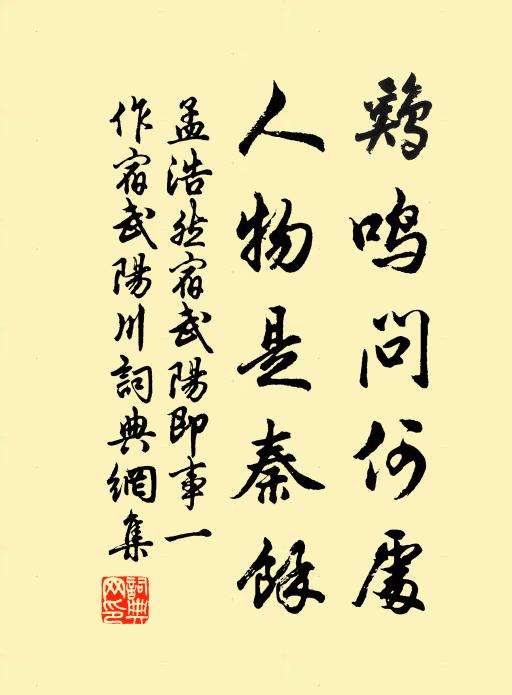 鷄鳴問何處
人物是秦餘
孟浩然宿武陽即事一
作宿武陽川詞典網集
詞典
网印